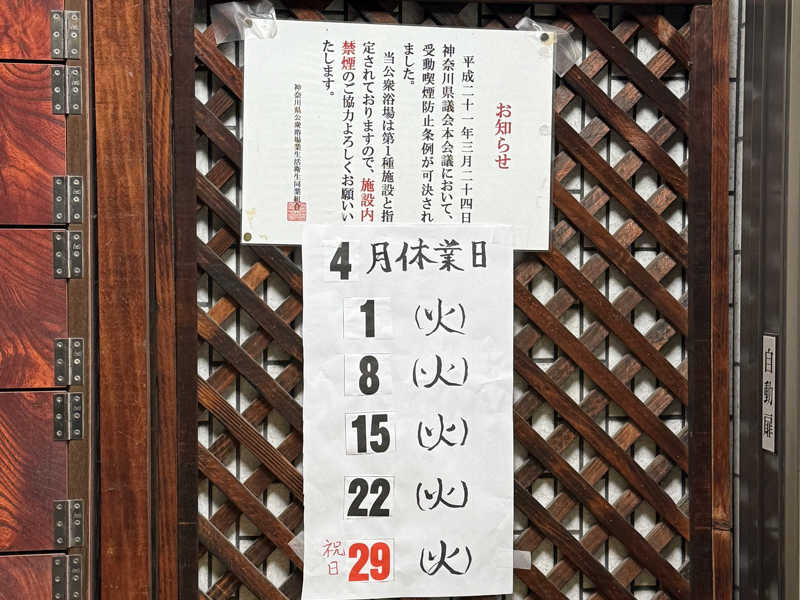 お知らせ
平成二十一年三月二十四日
神奈川県議会本会議において、
受動喫煙防止条例が可決され
ました。
当公衆浴場は第1種施設と指
定されておりますので、施設内
禁煙のご協力よろしくお願いい
たします。
神奈川県公衆浴場業生活衛生同業組合
4月休業日
1 (火)
8 (火)
15 (火)
22 (火)
祝日 29 (火)
自動扉